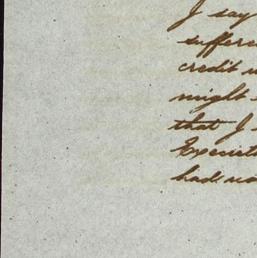 I say
suffere
credit u
might
that I
Execut
had no